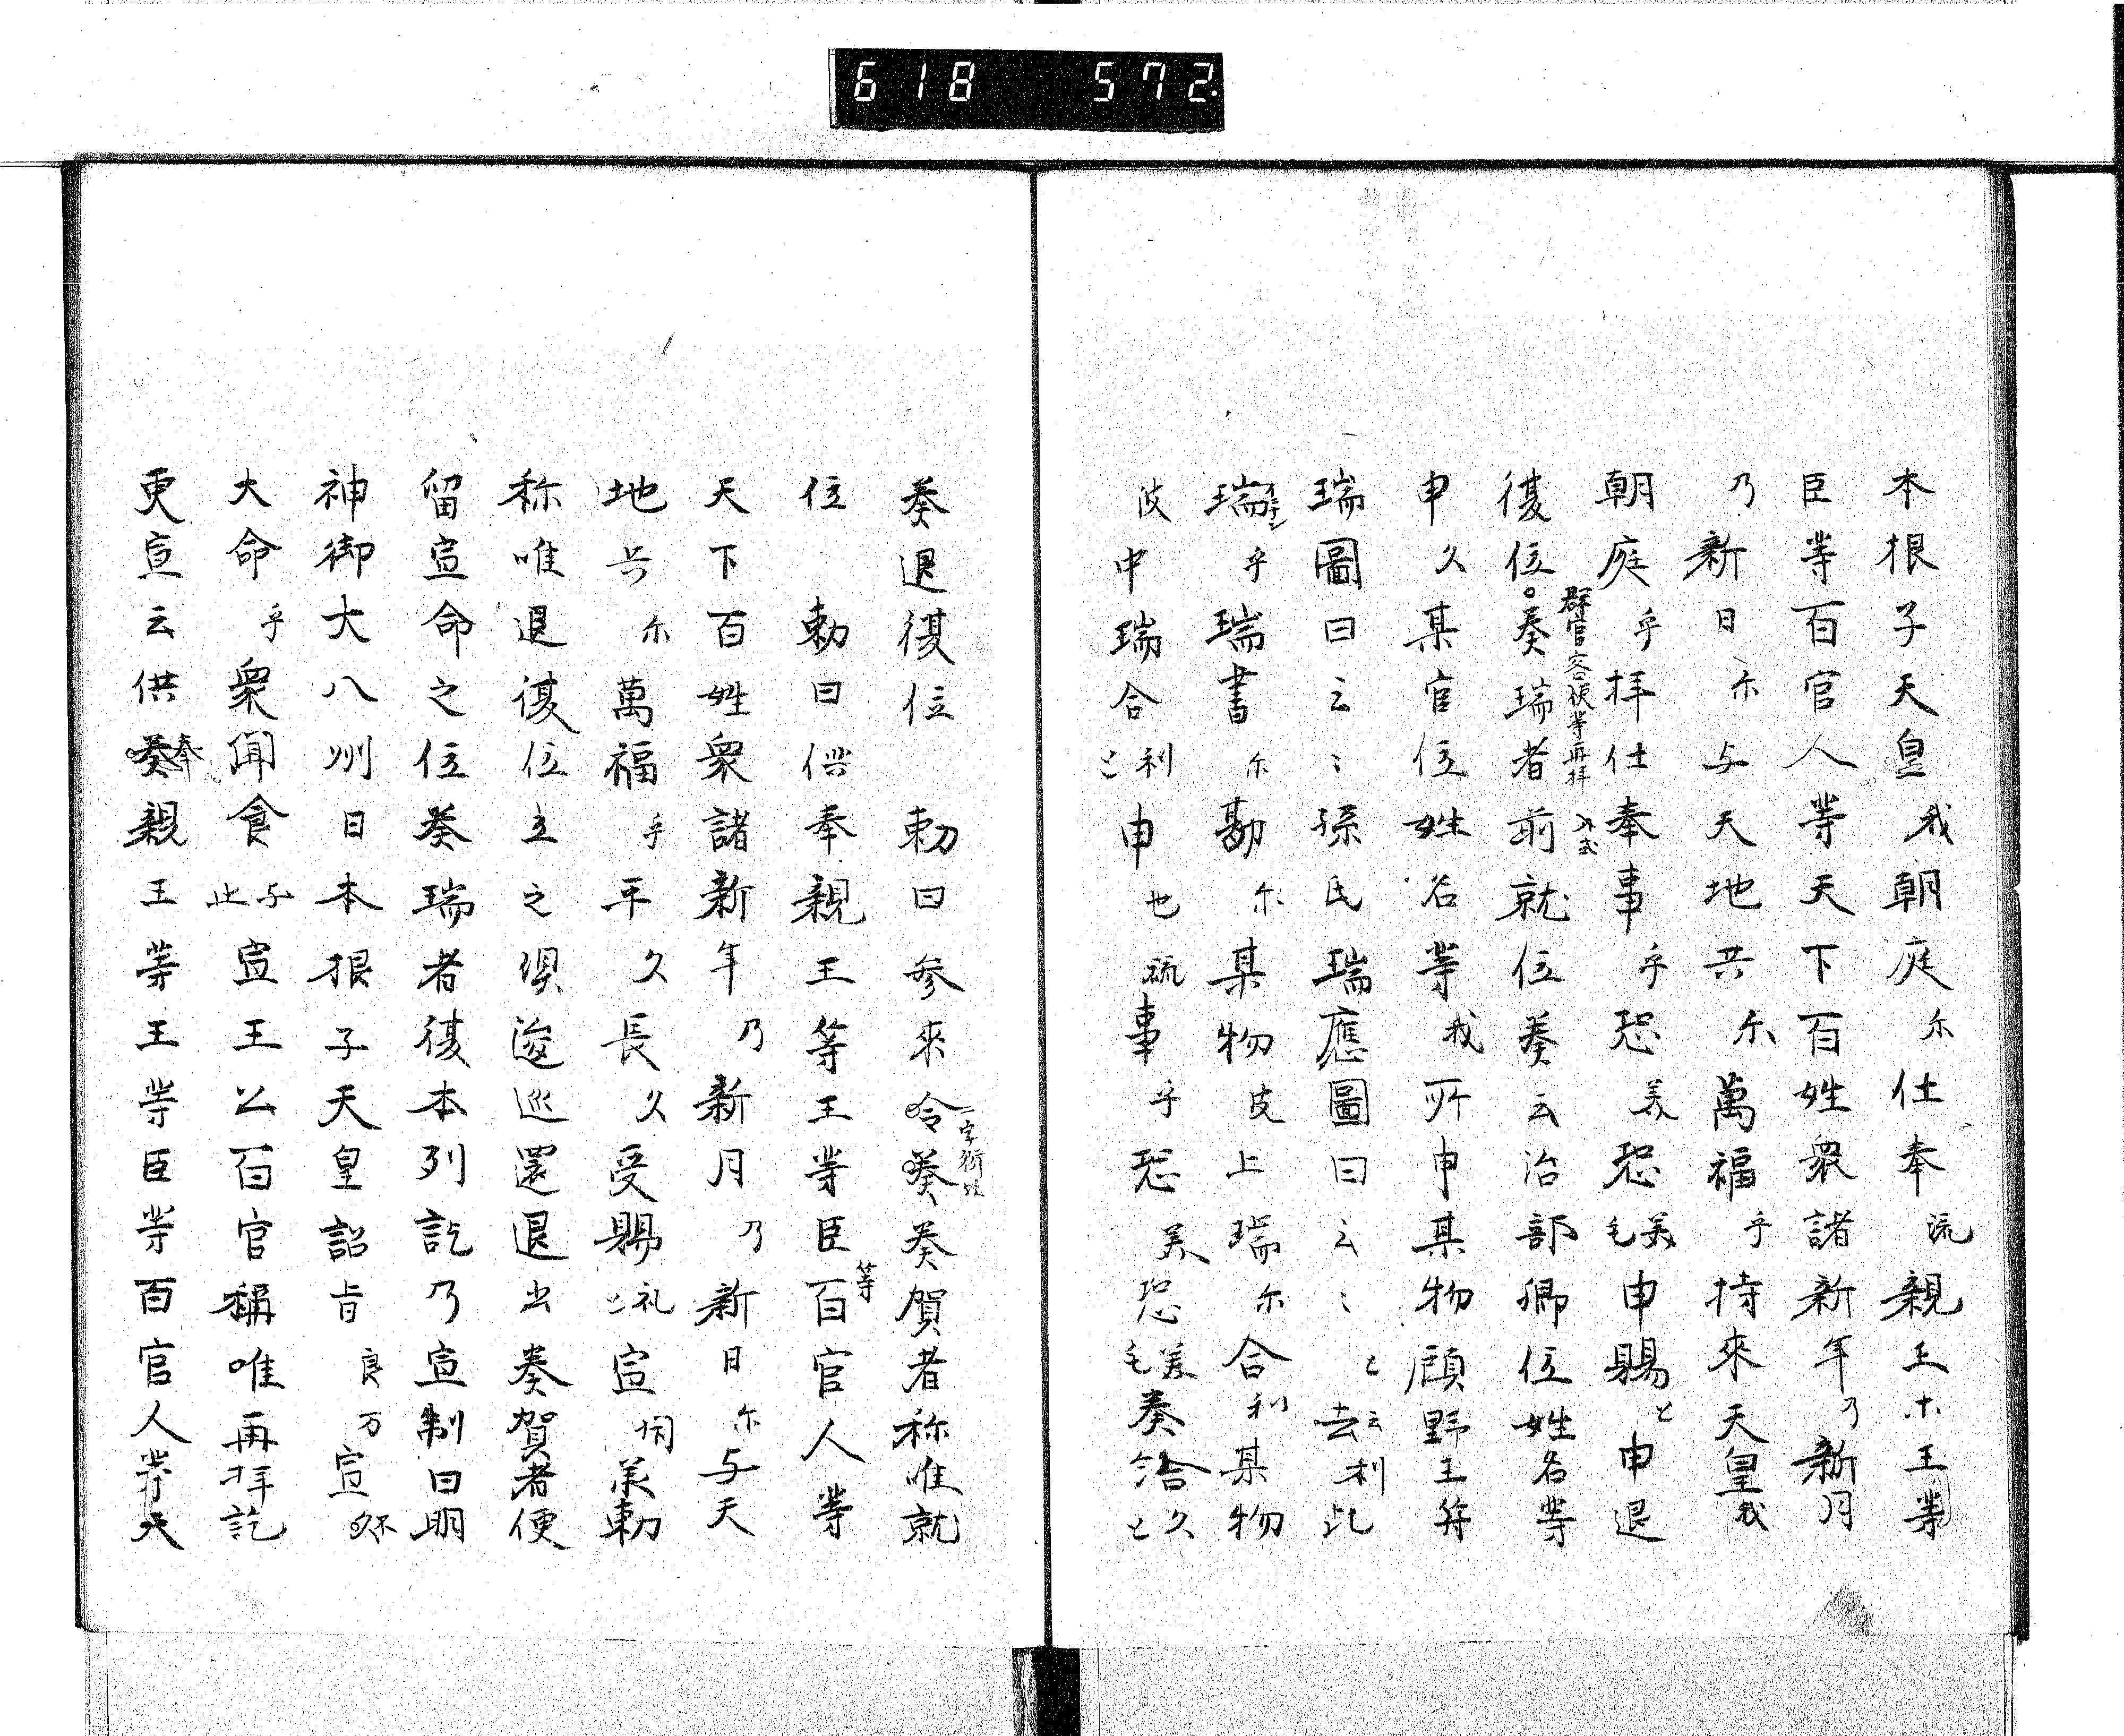 618 572.
本根子天皇我朝庭尓仕奉流親王ホ王等
臣等百官人等天下百姓衆諸新年乃新月
乃新日尓与天地共尓萬福乎持來天皇我
朝庭乎拝仕奉事乎恐美恐美毛申賜と申退
群官客使等再拝
復位。奏瑞者前就位奏云治部卿位姓名等
申久某官位姓名等我所申某物顧野王符
瑞圖曰云〻孫氏瑞應圖曰云〻と云利去此
瑞乎瑞書尓勘尓某物波上瑞尓合利某物
波中瑞合利と申也流事乎恐美恐美毛奏給久と
奏退復位 勅曰参來令奏奏賀者称唯就
位 勅曰供奉親王等王等臣等百官人等
天下百姓衆諸新年乃新月乃新日尓与天
地共尓萬福乎平久長久受賜礼と宣 承勅
称唯退復位立之須逡巡還退出奏賀者便
留宣命之位奏瑞者復本列訖乃宣制曰明
神御大八洲日本根子天皇詔旨良万宣
大命乎衆聞食止宣王公百官稱唯再拝訖
更宣云供奏奉親王等王等臣等百官人等天